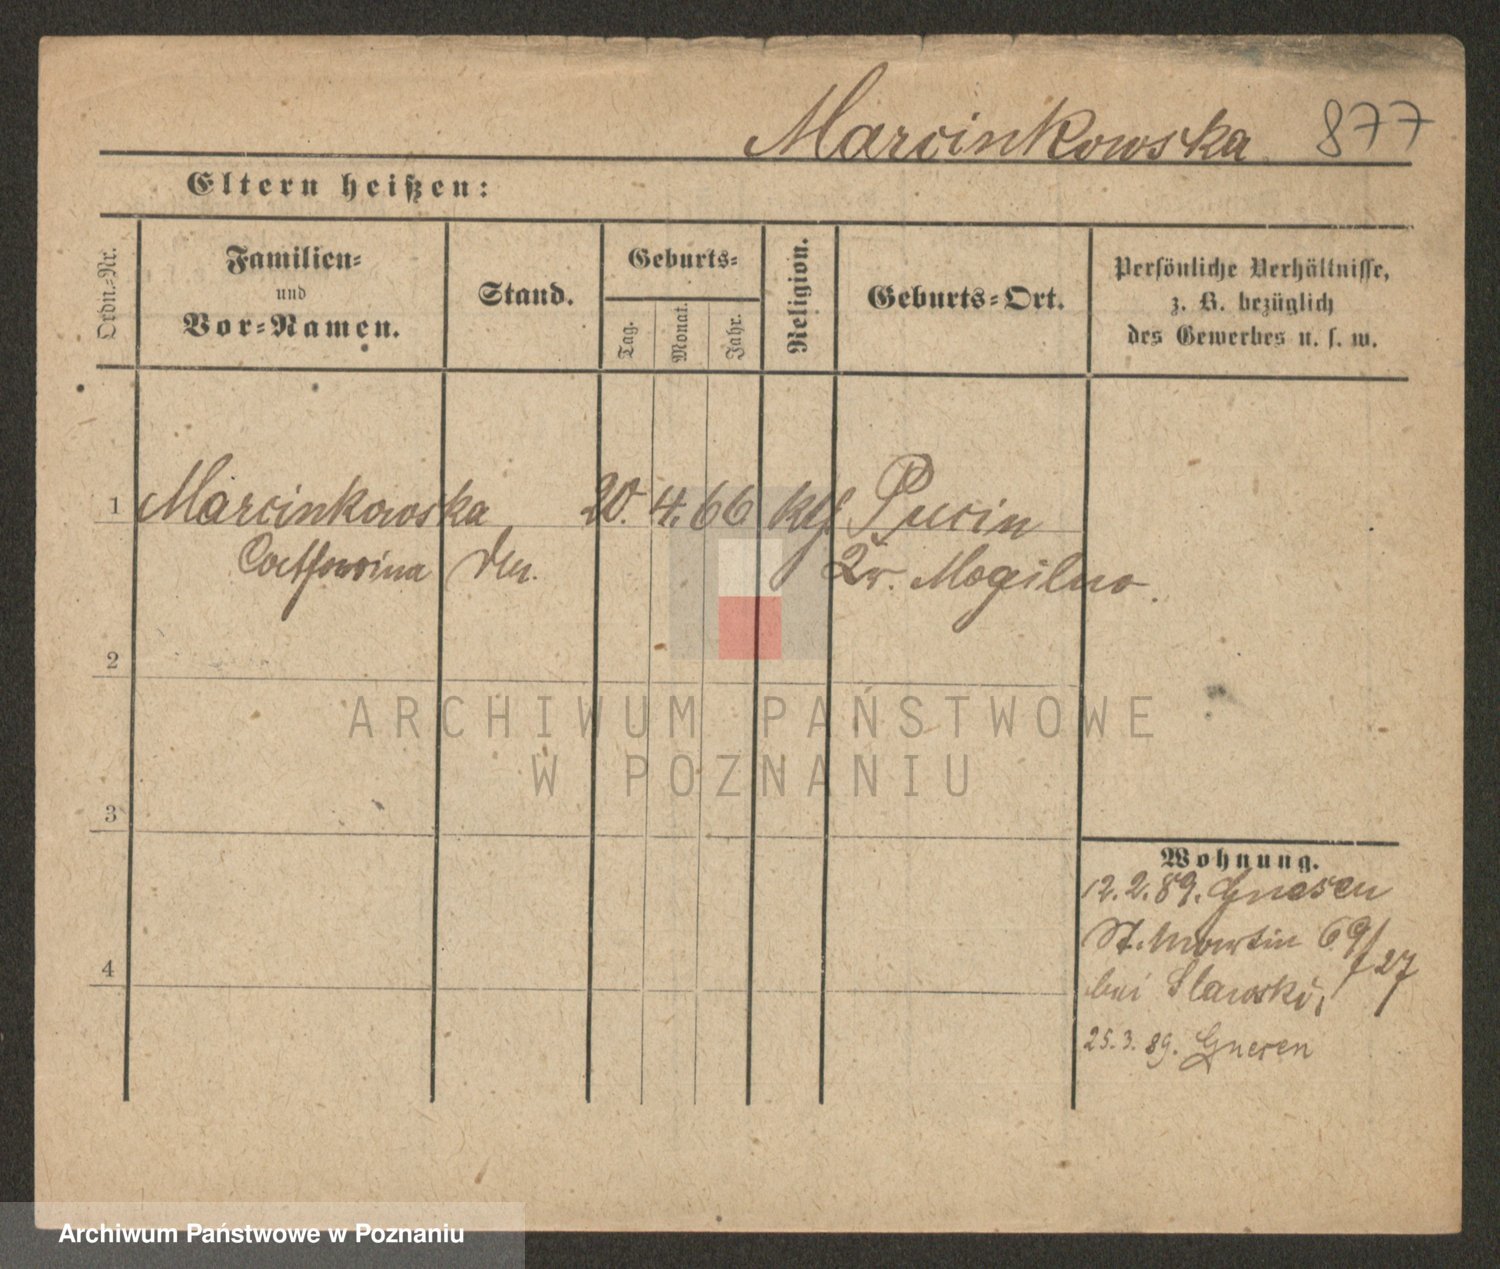 Marcinkowska 877
Eltern heißen:
Ordn.-Nr.
Familien-
und
Vor-Namen.
Stand.
Geburts-
Tag.
Monat.
Jahr.
Religion.
Geburts-Ort.
Persönliche Verhältnisse,
z. B. bezüglich
des Gewerbes u. s. w.
1 Marcinkowska 20. 4. 66 kth Pucin
Catharina Kr. Mogilno.
2
3
4
Wohnung.
12.2.89. Gnesen
St. Martin 69/27
bei Slawski,
25.3.89. Gnesen
ARCHIWUM PAŃSTWOWE
W POZNANIU
Archiwum Państwowe w Poznaniu